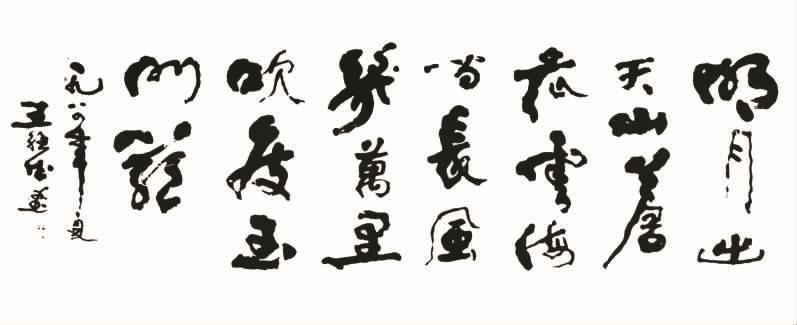 明月出
天山蒼
茫雲海
間長風
幾萬里
吹度玉
門關
年夏
王